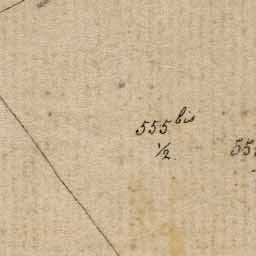 555 bis
1/2